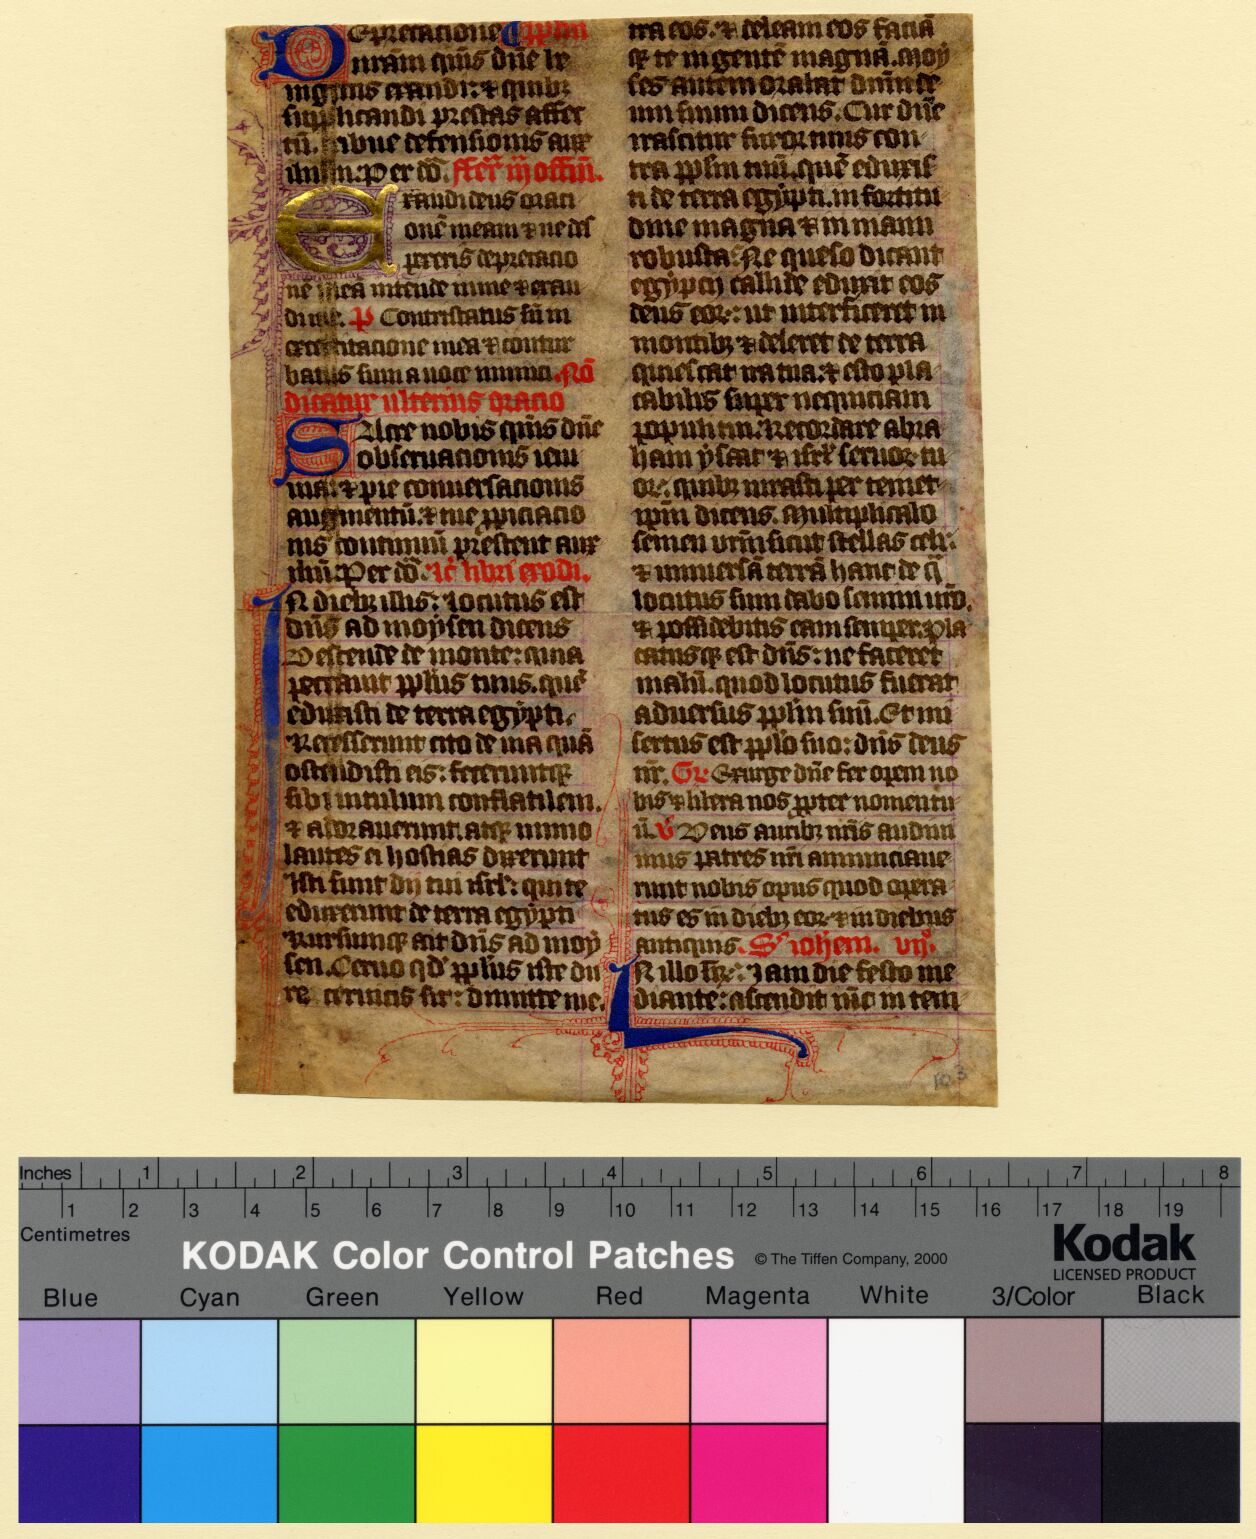 Deprecatione ppl̄m
nr̄am quis dn̄e re
ingimis exaudi: ⁊ quibꝫ
supplicandi prestas affec
tū. tribue defensionis aux
iliū. Per dō. fer̄ iij officiū.
Exaudi deus orati
onē meam ⁊ ne des
pexeris deprecatio
nē meā intende mihi ⁊ exau
di me. p̄ Contristatus sū in
exercitatione mea ⁊ contur
batus sum a uoce inimici. Nō
dicatur ulterius oratio
Sacre nobis quis dn̄e
obseruationis ieiu
nia: ⁊ pie conuersationis
augmentū. ⁊ tue ꝓpiciatio
nis continuū prestent aux
iliū. Per dō. lc̄ libri exodi.
In diebꝫ illis: Locutus est
dn̄s ad moysen dicens
Descende de monte: quia
peccauit ppl̄us tuus. quē
eduxisti de terra egypti.
Recesserunt cito de uia quā
ostendisti eis: feceruntqꝫ
sibi uitulum conflatilem.
⁊ adorauerunt. atqꝫ immo
lantes ei hostias dixerunt
Isti sunt dij tui isrl̄: qui te
eduxerunt de terra egypti
Rursumqꝫ ait dn̄s ad moy
sen. Cerno qd̄ ppl̄us iste du
re ceruicis sit: dimitte me.
tra eos. ⁊ deleam eos faciā
qꝫ te in gentē magnā. Moy
ses autem orabat dn̄m de
um suum dicens. Cur dn̄e
irascitur furor tuus con
tra ppl̄m tuū. quē eduxis
ti de terra egypti. in fortitu
dine magna ⁊ in manu
robusta: Ne queso dicant
egyptij callide eduxit eos
deus eoꝝ: ut interficeret in
montibꝫ ⁊ deleret de terra
quiescat ira tua. ⁊ esto pla
cabilis super nequiciam
populi tui. Recordare abra
ham ysaac ⁊ isrl̄ seruoꝝ tu
oꝝ. quibꝫ iurasti per temet
ip̄m dicens. Multiplicabo
semen ur̄m sicut stellas celi:
⁊ uniuersā terrā hanc de q̄
locutus sum dabo semini ur̄o.
⁊ possidebitis eam semper. Pla
catusqꝫ est dn̄s: ne faceret
malū. quod locutus fuerat
aduersus ppl̄m suū. Et mi
sertus est ppl̄o suo: dn̄s deus
nr̄. Gr̄. Exurge dn̄e fer opem no
bis ⁊ libera nos ꝓpter nomen tu
ū. v̄ Deus auribꝫ nr̄is audiui
mus patres nr̄i annunciaue
runt nobis opus quod opera
tus es in diebꝫ eoꝝ ⁊ in diebus
antiquis. Sc̄ ioh̄em. vij.
In illo tr̄e: Iam die festo me
diante: ascendit ih̄c in tem
103
Inches 1 2 3 4 5 6 7 8
1 2 3 4 5 6 7 8 9 10 11 12 13 14 15 16 17 18 19
Centimetres
KODAK Color Control Patches © The Tiffen Company, 2000
Kodak
LICENSED PRODUCT
Blue Cyan Green Yellow Red Magenta White 3/Color Black